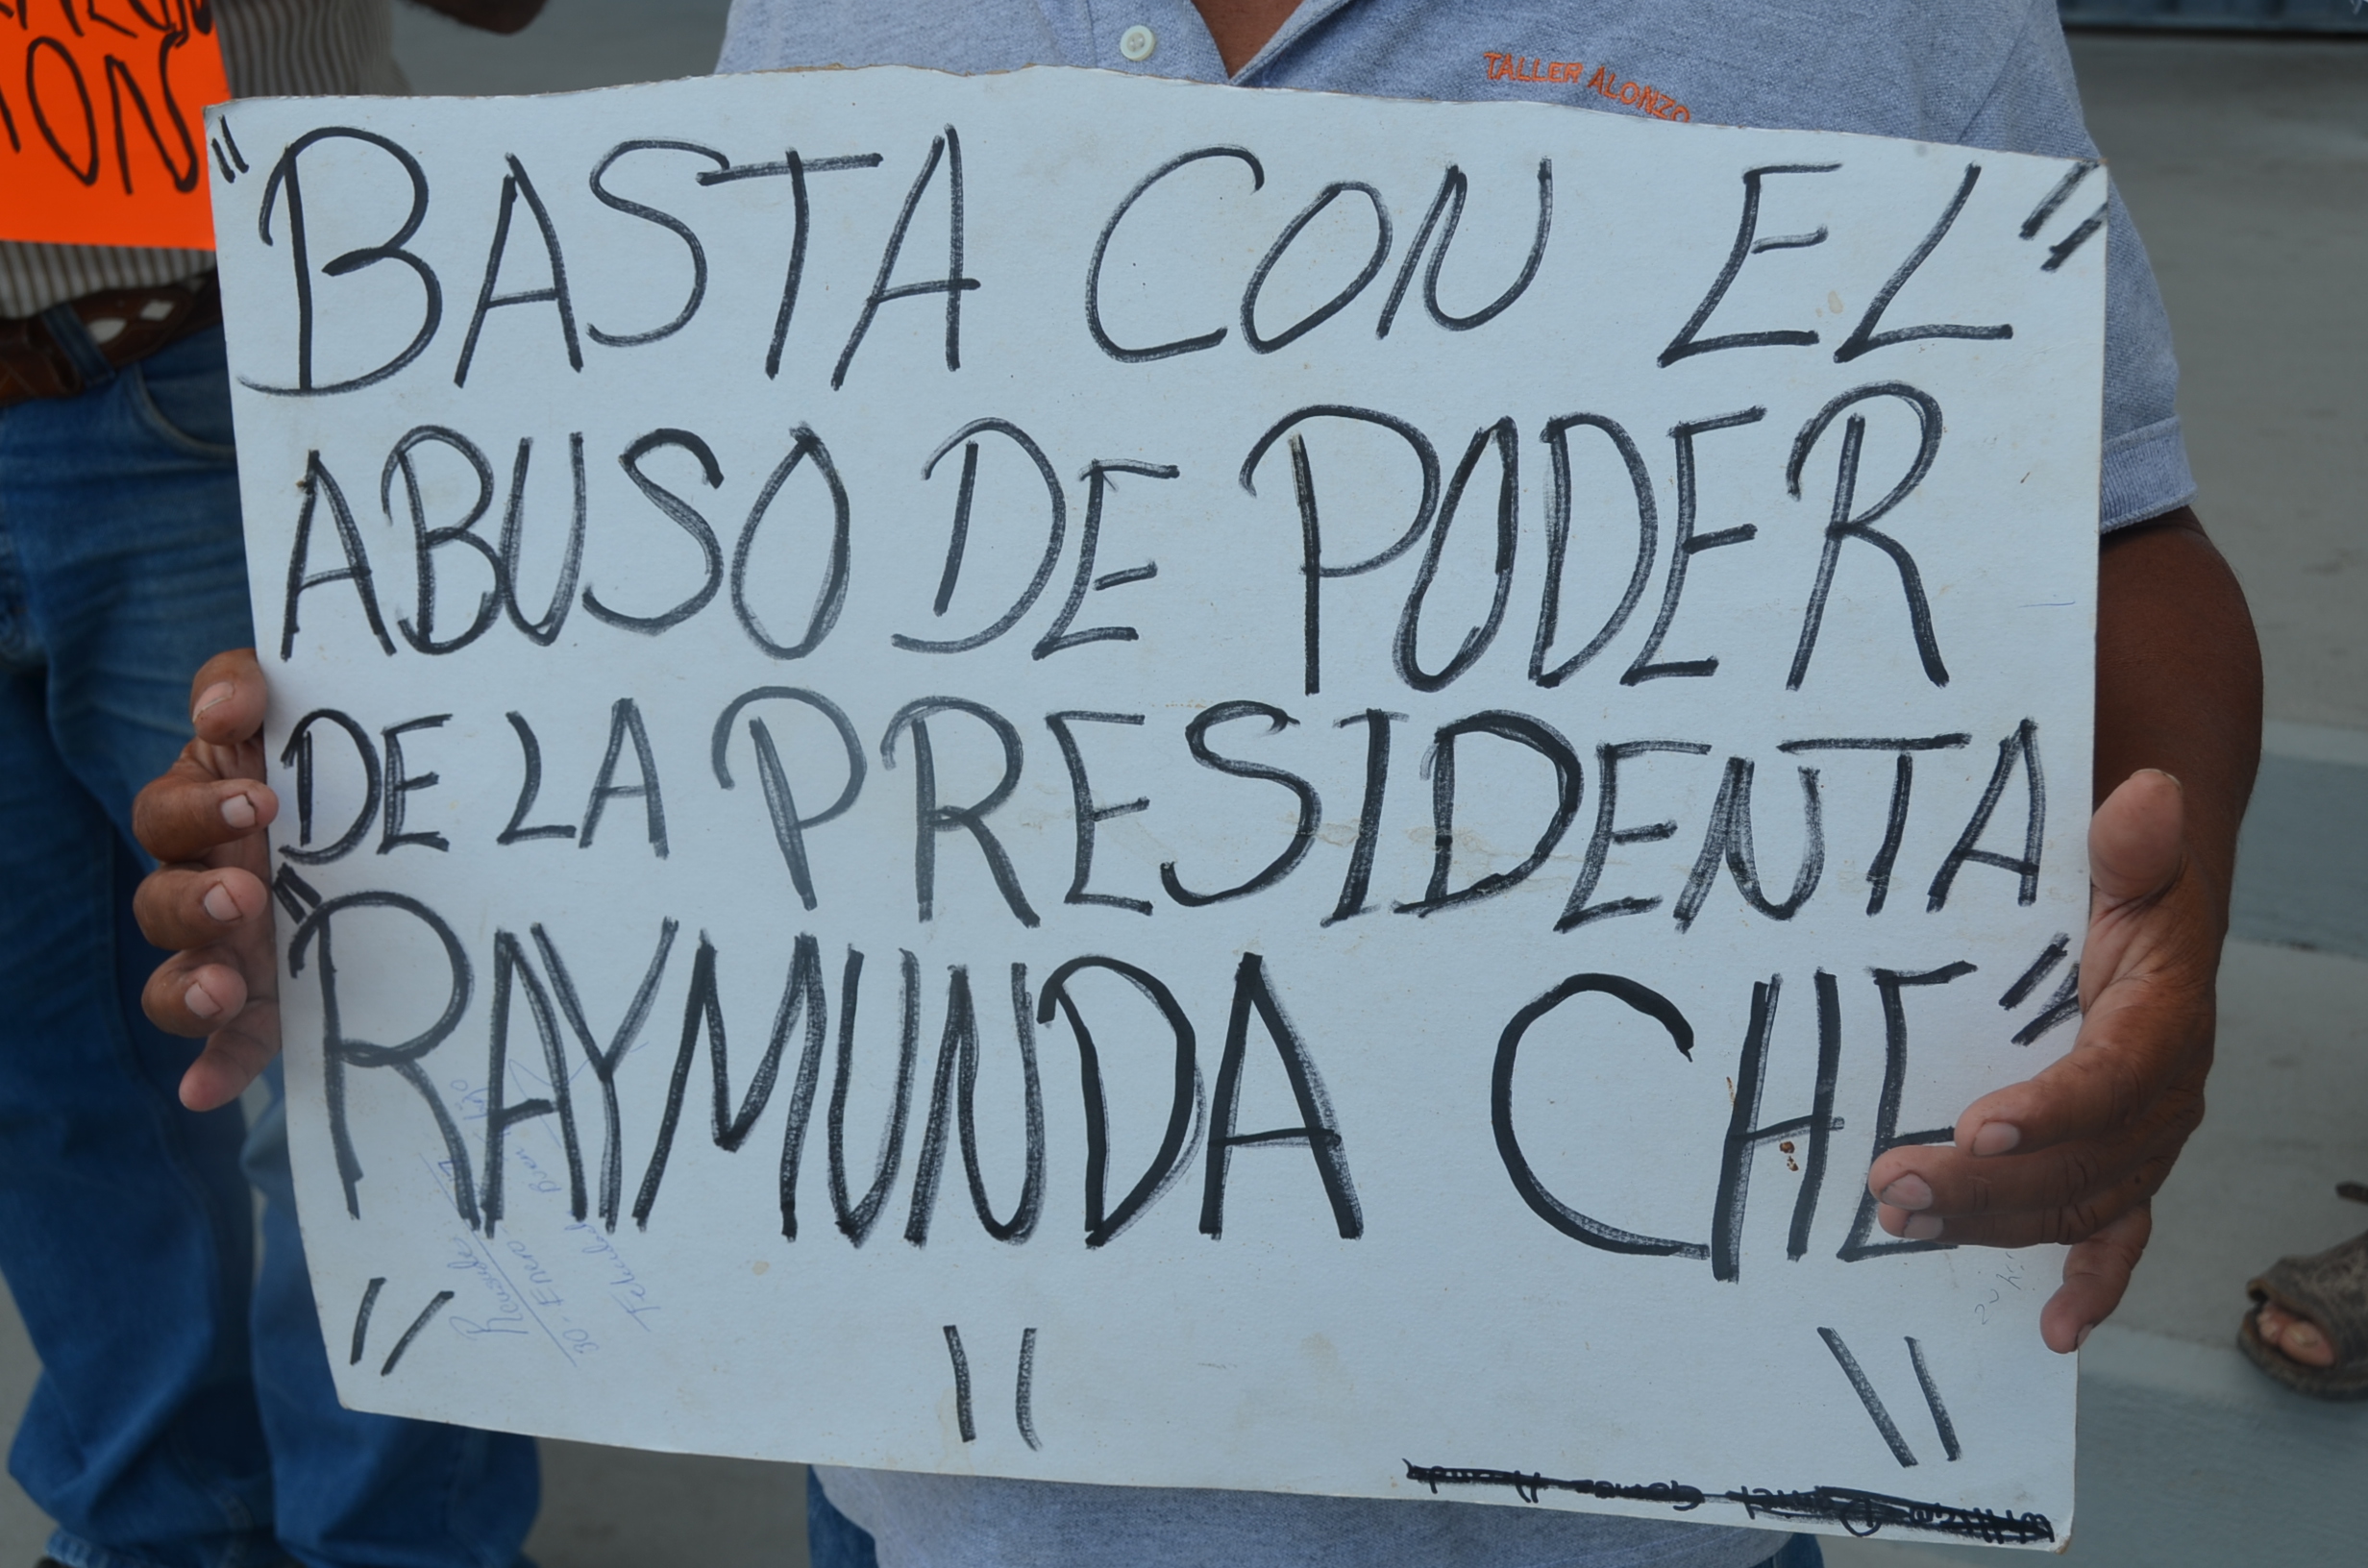 TALLER ALONZO
ION
"BASTA CON EL"
ABUSO DE PODER
DE LA PRESIDENTA
"RAYMUNDA CHE"
30 - Enero -